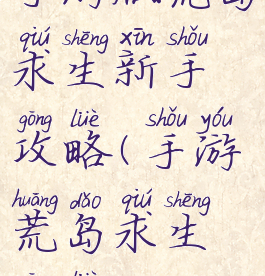 qiú shēng xīn shǒu
求生新手
gōng lüè shǒu yóu
攻略(手游
huāng dǎo qiú shēng
荒岛求生